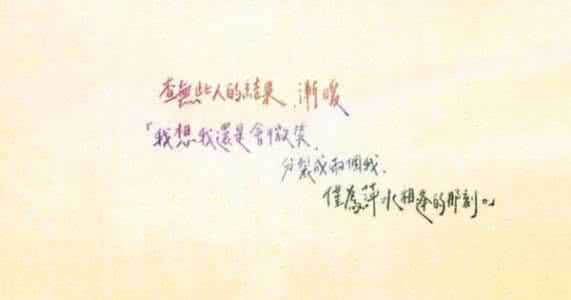 查無此人的結果、漸暖
「我想我還是會微笑,
分裂成兩個我、
僅為萍水相逢的那刻。」